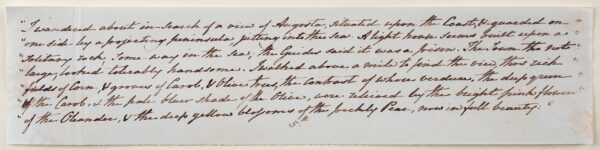 "I wandered about in search of a view of Augusta, situated upon the Coast, & guarded on "
" one side by a projecting peninsula jutting into the sea. A light house seems built upon a "
" solitary rock. Some way in the sea, the Guides said it was a prison. The Town tho' not "
" large, looked tolerably handsome. I walked above a mile to find the view, thro' rich "
" fields of corn, & groves of Carob, & Olive trees, the contrast of whose verdure, the deep green "
" of the Carob, & the pale bluer shade of the Olive, were relieved by the bright pink flower "
of the Oleander, & the deep yellow blossoms of the prickly Pear, now in full beauty: "